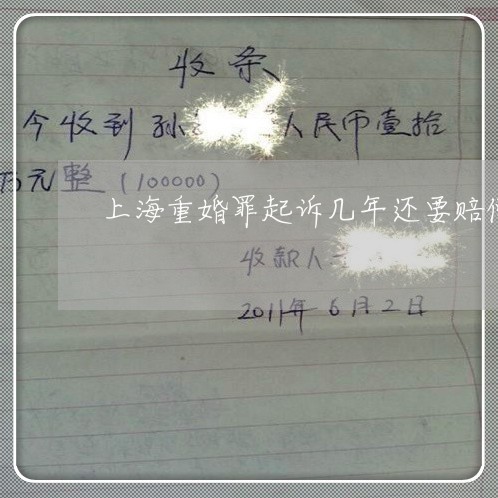 收条
今收到孙 人民币壹拾
万元整（100000）
上海重婚罪起诉几年还要赔
收款人
2011年6月2日